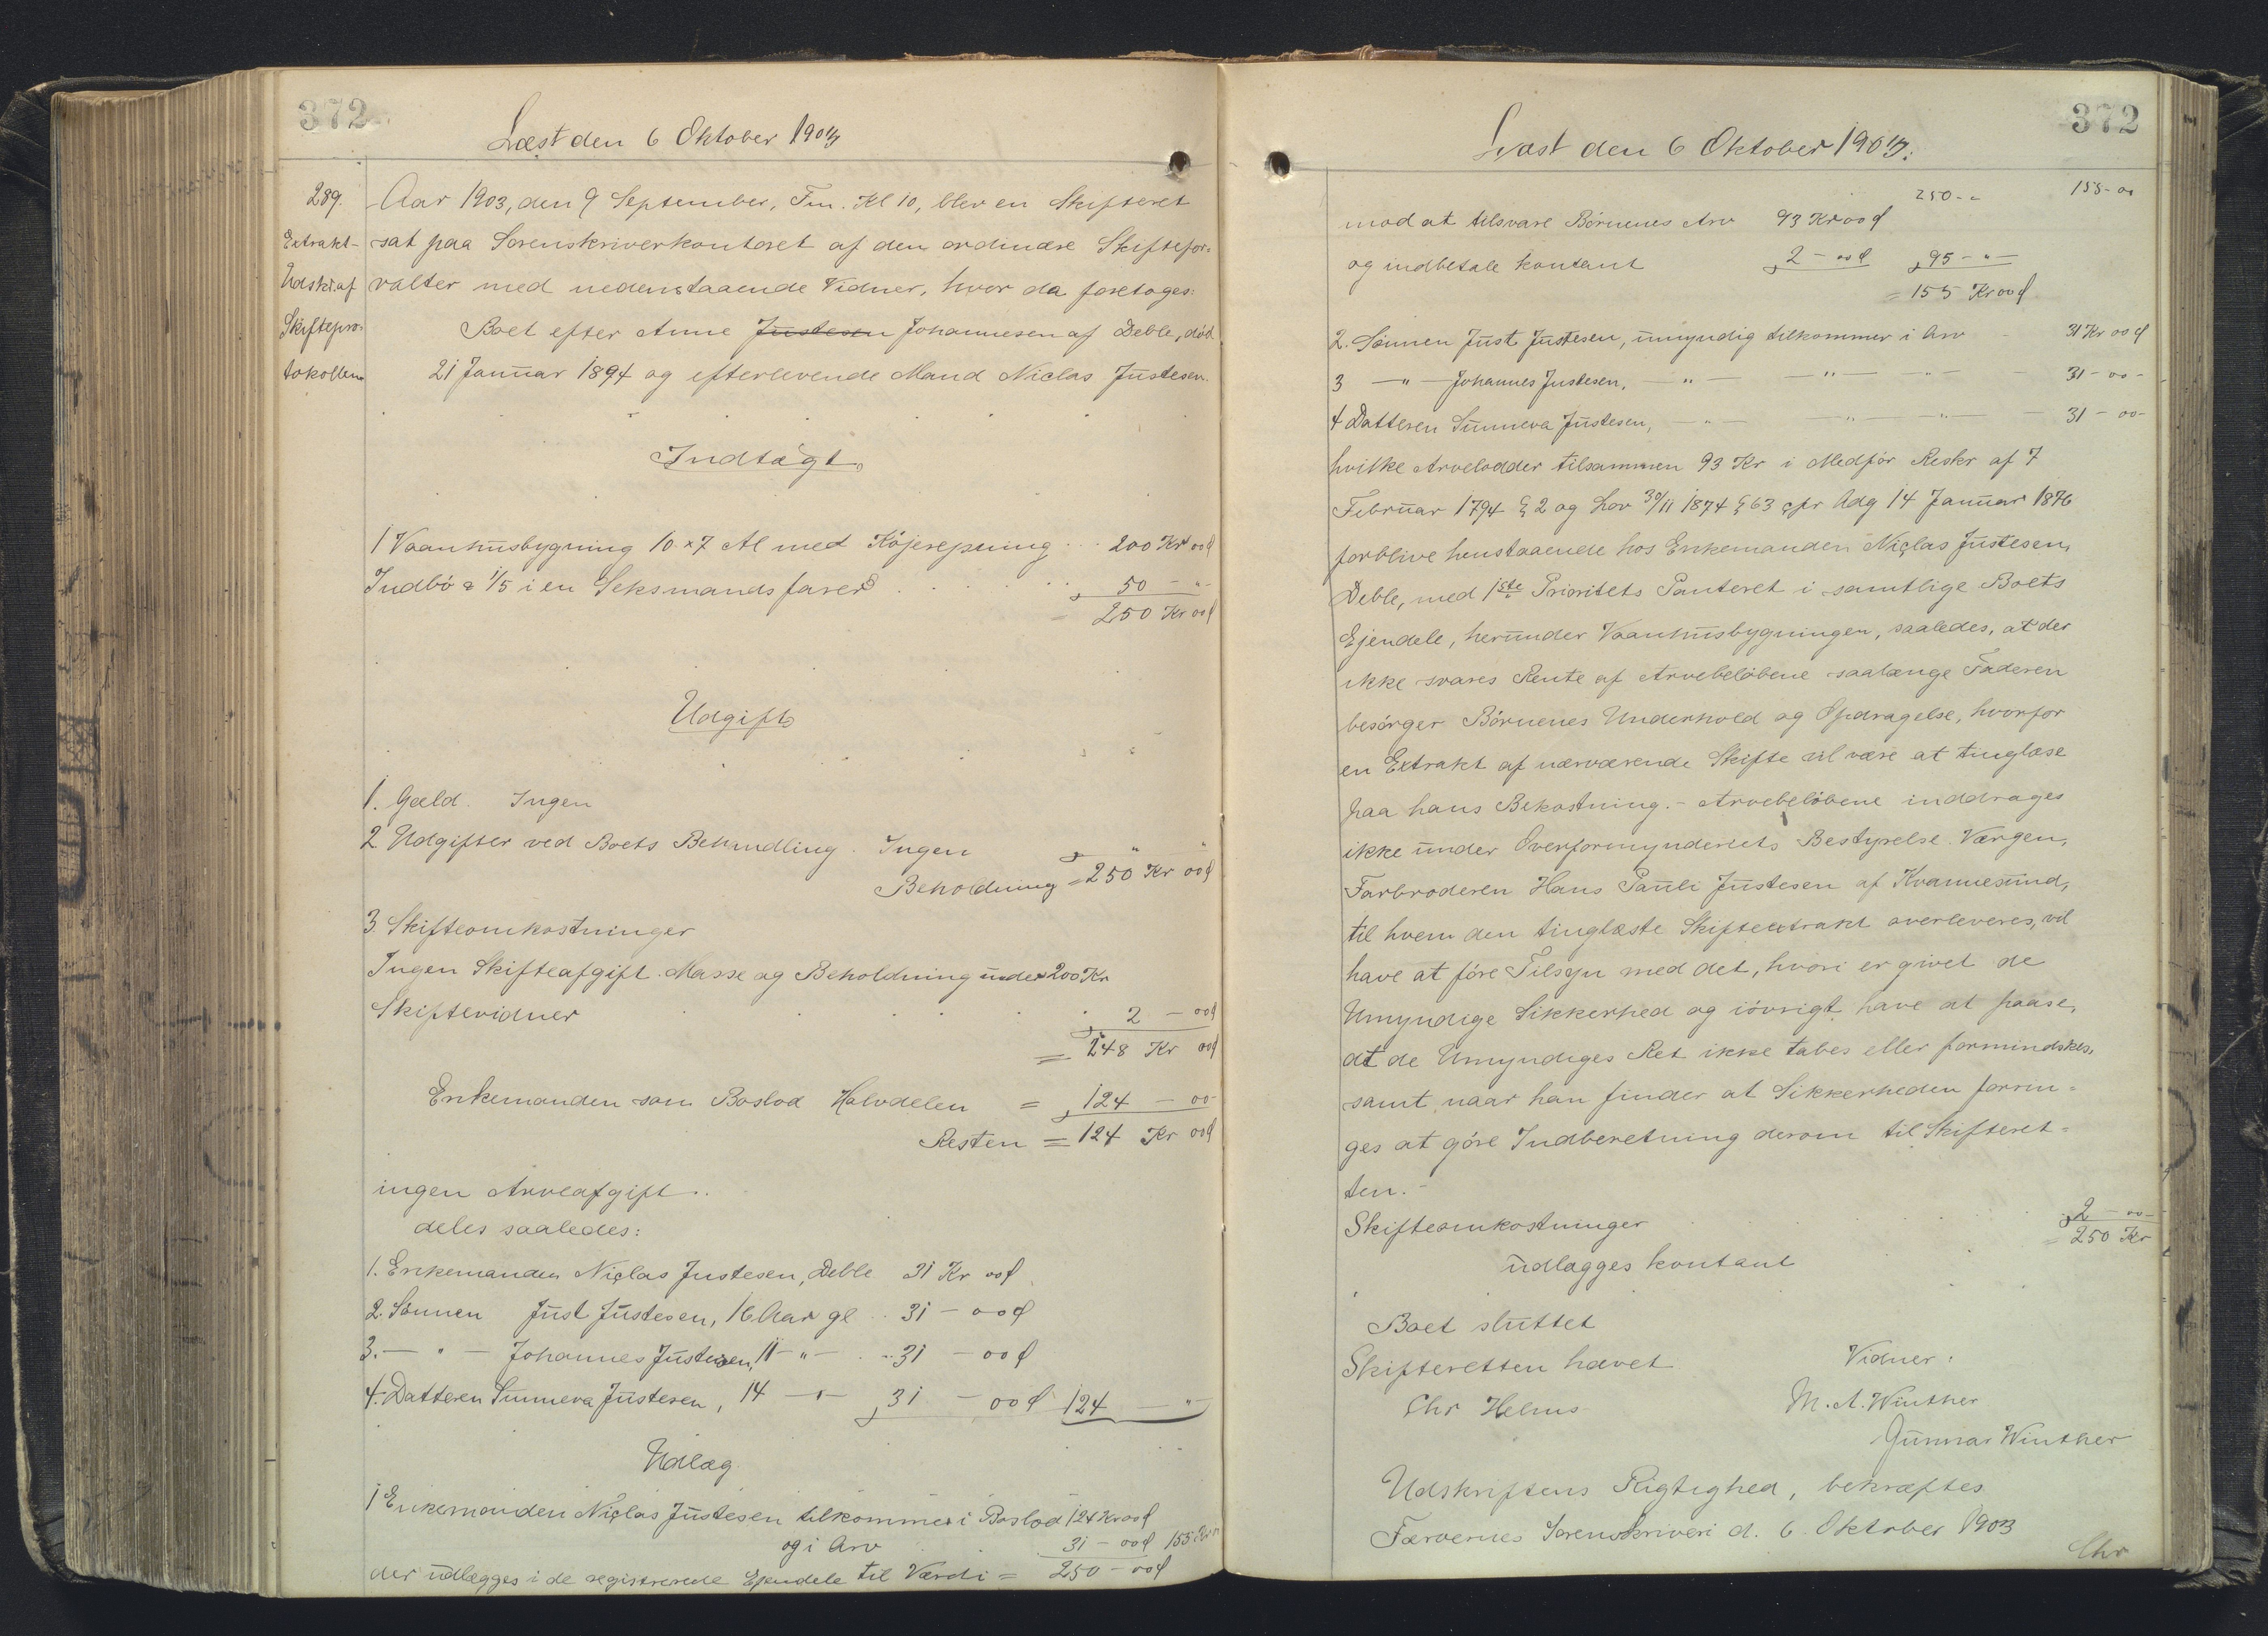 372
Læst den 6 Oktober 1903
289. Aar 1903, den 9 September, Fm. Kl 10, blev en Skifteret
Extrakt- sat paa Sorenskriverkontoret af den ordinære Skiftefor=
Udskr. af valter med nedenstaaende Vidner, hvor da foretoges:
Skiftepro= Boet efter Anne Justesen Johannesen af Deble, død
tokollen 21 Januar 1894 og efterlevende Mand Niclas Justesen.
Indtægt
1 Vaanhusbygning 10 x 7 Al med Köjerepning 200 Kr 00 Ø
Indbo & 1/5 i en Seksmandsfarer 50 - " -
= 250 Kr 00 Ø
Udgift
1. Gæld. Ingen
2 Udgifter ved Boets Behandling. Ingen " "
Beholdning = 250 Kr 00 Ø
3. Skifteomkostninger
Ingen Skifteafgift. Masse og Beholdning under 200 Kr
Skiftevidner 2 - 00 Ø
= 248 Kr 00 Ø
Enkemanden som Boslod Halvdelen = 124 - 00 -
Resten = 124 Kr 00 Ø
ingen Arveafgift..
deles saaledes:
1. Enkemanden Niclas Justesen, Deble 31 Kr 00 Ø
2. Sønnen Just Justesen, 16 Aar gl .. 31 - 00 Ø
3. — " — Johannes Justesen, 11 - " - .. 31 - 00 Ø
4. Datteren Sunneva Justesen, 14 - " - 31 - 00 Ø 124 - " -
Udlæg
1 Enkemanden Niclas Justesen tilkommer i Boslod 124 Kr 00 Ø
og i Arv 31 - 00 Ø 155 Kr
der udlægges i de registrerede Ejendele til Værdi = 250 - 00 Ø
372
Læst den 6 Oktober 1903.
250 - " 155 - 00
mod at tilsvare Börnenes Arv 93 Kr 00 Ø
og indbetale kontant 2 - 00 Ø 95 - " -
= 155 Kr 00 Ø
2. Sönnen Just Justesen, umyndig tilkommer i Arv 31 Kr 00 Ø
3 — " — Johannes Justesen, — " — — " — — " — 31 - 00 -
4 Datteren Sunneva Justesen, — " — " — " — 31 - 00 -
hvilke Arvelodder tilsammen 93 Kr i Medför Reskr af 7
Februar 1794 § 2 og Lov 30/11 1874 § 63 cfr Adg 14 Januar 1876
forblive henstaaende hos Enkemanden Niclas Justesen,
Deble, med 1ste Prioritets Panteret i samtlige Boets
Ejendele, herunder Vaanhusbygningen, saaledes, at der
ikke svares Rente af Arvebelöbene saalænge Faderen
besörger Börnenes Underhold og Opdragelse, hvorfor
en Extrakt af nærværende Skifte vil være at tinglæse
paa hans Bekostning. - Arvebelöbene inddrages
ikke under Overformynderiets Bestyrelse. Værgen,
Farbroderen Hans Pauli Justesen af Kvannesund,
til hvem den tinglæste Skifteextrakt overleveres, vil
have at före Tilsyn med det, hvori er givet de
Umyndige Sikkerhed og iövrigt have at paase,
at de Umyndiges Ret ikke tabes eller formindskes,
samt, naar han finder at Sikkerheden forrin=
ges at göre Indberetning derom til Skifteret=
ten. -
Skifteomkostninger 2 - 00 -
udlægges kontant = 250 Kr
Boet sluttet
Skifteretten hævet. Vidner:
Chr Helms M. A. Winther
Gunnar Winther
Udskriftens Rigtighed, bekræftes
Færöernes Sorenskriveri d. 6. Oktober 1903
Chr